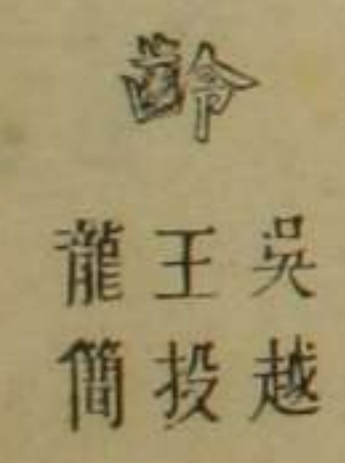 齡
吳越
王投
龍簡